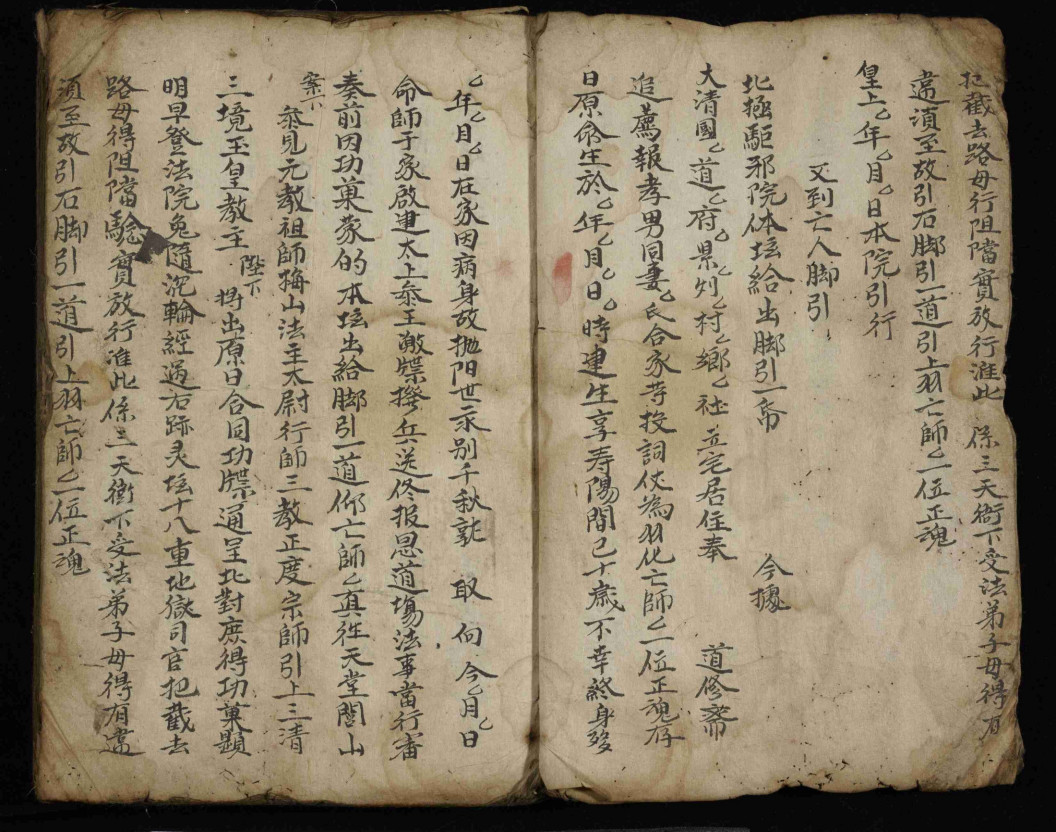 把截去路毋行阻擋實放行准此 係三天衙下受法弟子毋得有
違須至故引右脚引一道引上羽亡師乙一位正魂
皇上乙年乙月乙日本院引行
又到亡人脚引
北極驅邪院体坛給出脚引一帋 今據
大清國乙道乙府乙縣乙村乙鄉乙社立宅居住奉 道修齋
追薦報孝男同妻乙氏合家等投詞伏為羽化亡師乙一位正魂存
日原命生於乙年乙月乙日乙時建生享寿陽間己十歲不幸終身歿
乙年乙月乙日在家因病身故拋阳世永别千秋 取向今乙月乙日
命師于家啟建太上叅王激牒撥兵送終报恩道場法事當行審
奏前因功菓蒙的本坛出給脚引一道仰亡師乙真往天堂閭山
案下 叅見元教祖師梅山法主太尉行師三教正度宗師引上三清
三境玉皇教主 陛下 将出原日合同功牒通呈比對庶得功菓顕
明早登法院免隨沉輪經過右跡灵坛十八重地獄司官把截去
路毋得阻擋驗實放行准此係三天衙下受法弟子毋得有違
須至故引右脚引一道引上羽亡師乙一位正魂